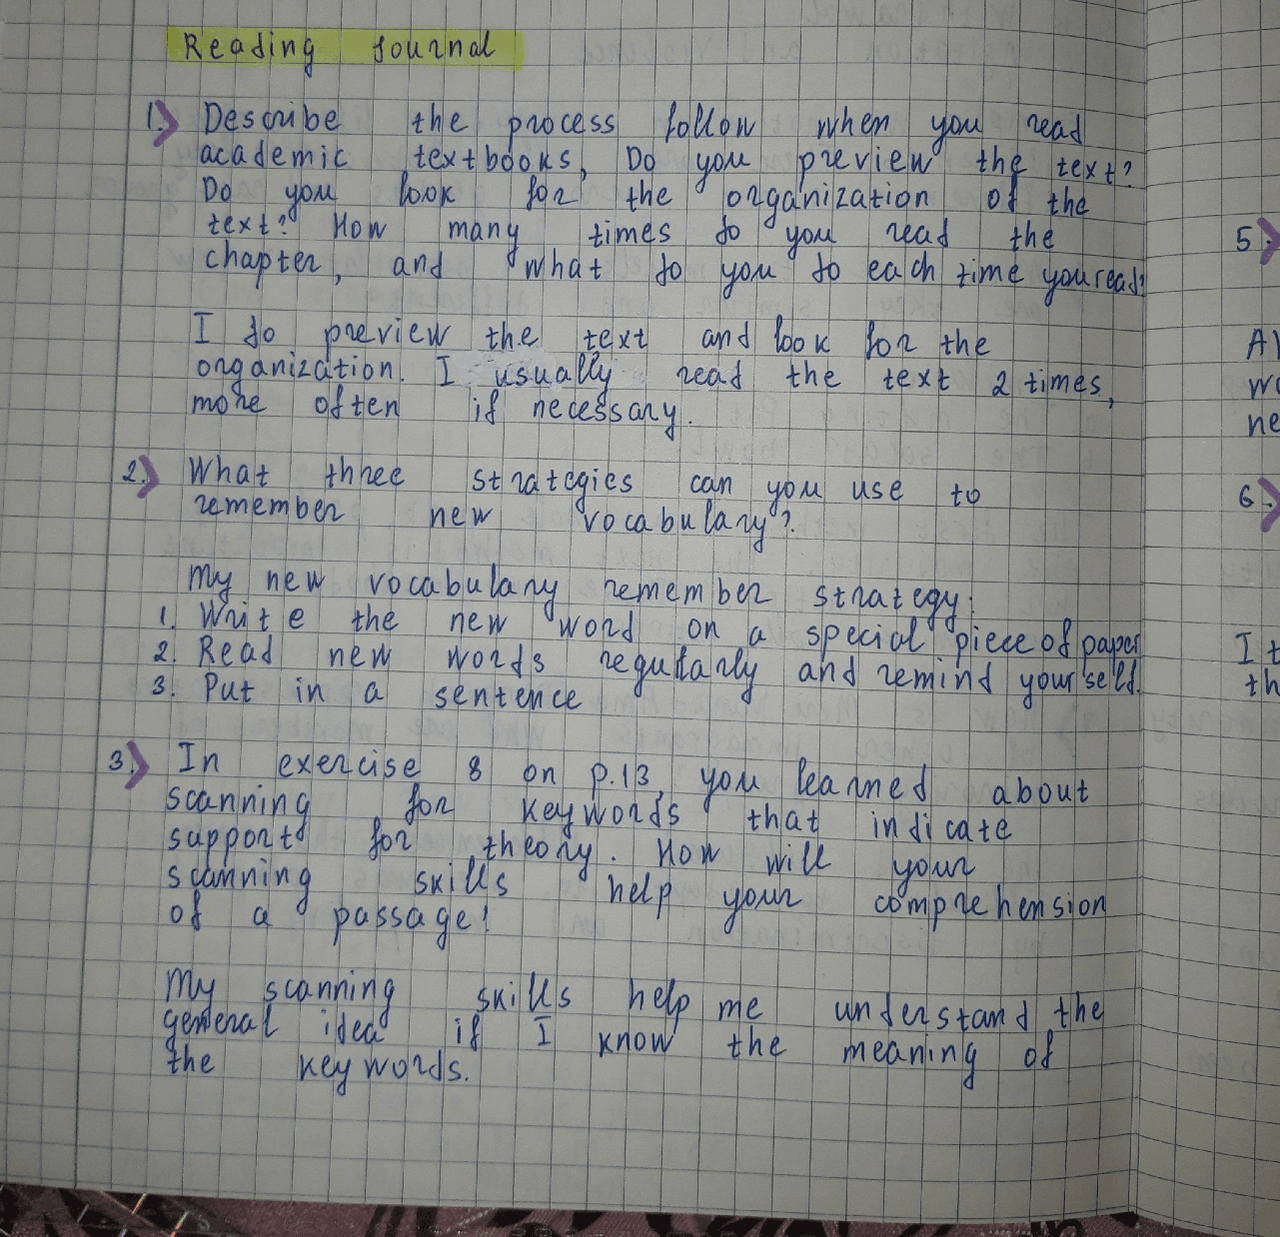 Reading Journal
1. Describe the process follow when you read
academic textbooks, Do you preview the text?
Do you look for the organization of the
text? How many times do you read the
chapter, and what do you do each time you read?
I do preview the text and look for the
organization. I usually read the text 2 times,
more often if necessary.
2. What three strategies can you use to
remember new vocabulary?
My new vocabulary remember strategy:
1. Write the new word on a special piece of paper
2. Read new words regularly and remind yourself.
3. Put in a sentence
3. In exercise 8 on p.13, you learned about
scanning for keywords that indicate
support for theory. How will your
scanning skills help your comprehension
of a passage?
My scanning skills help me understand the
general idea if I know the meaning of
the key words.
5.
Al
wo
ne
6.
I t
th